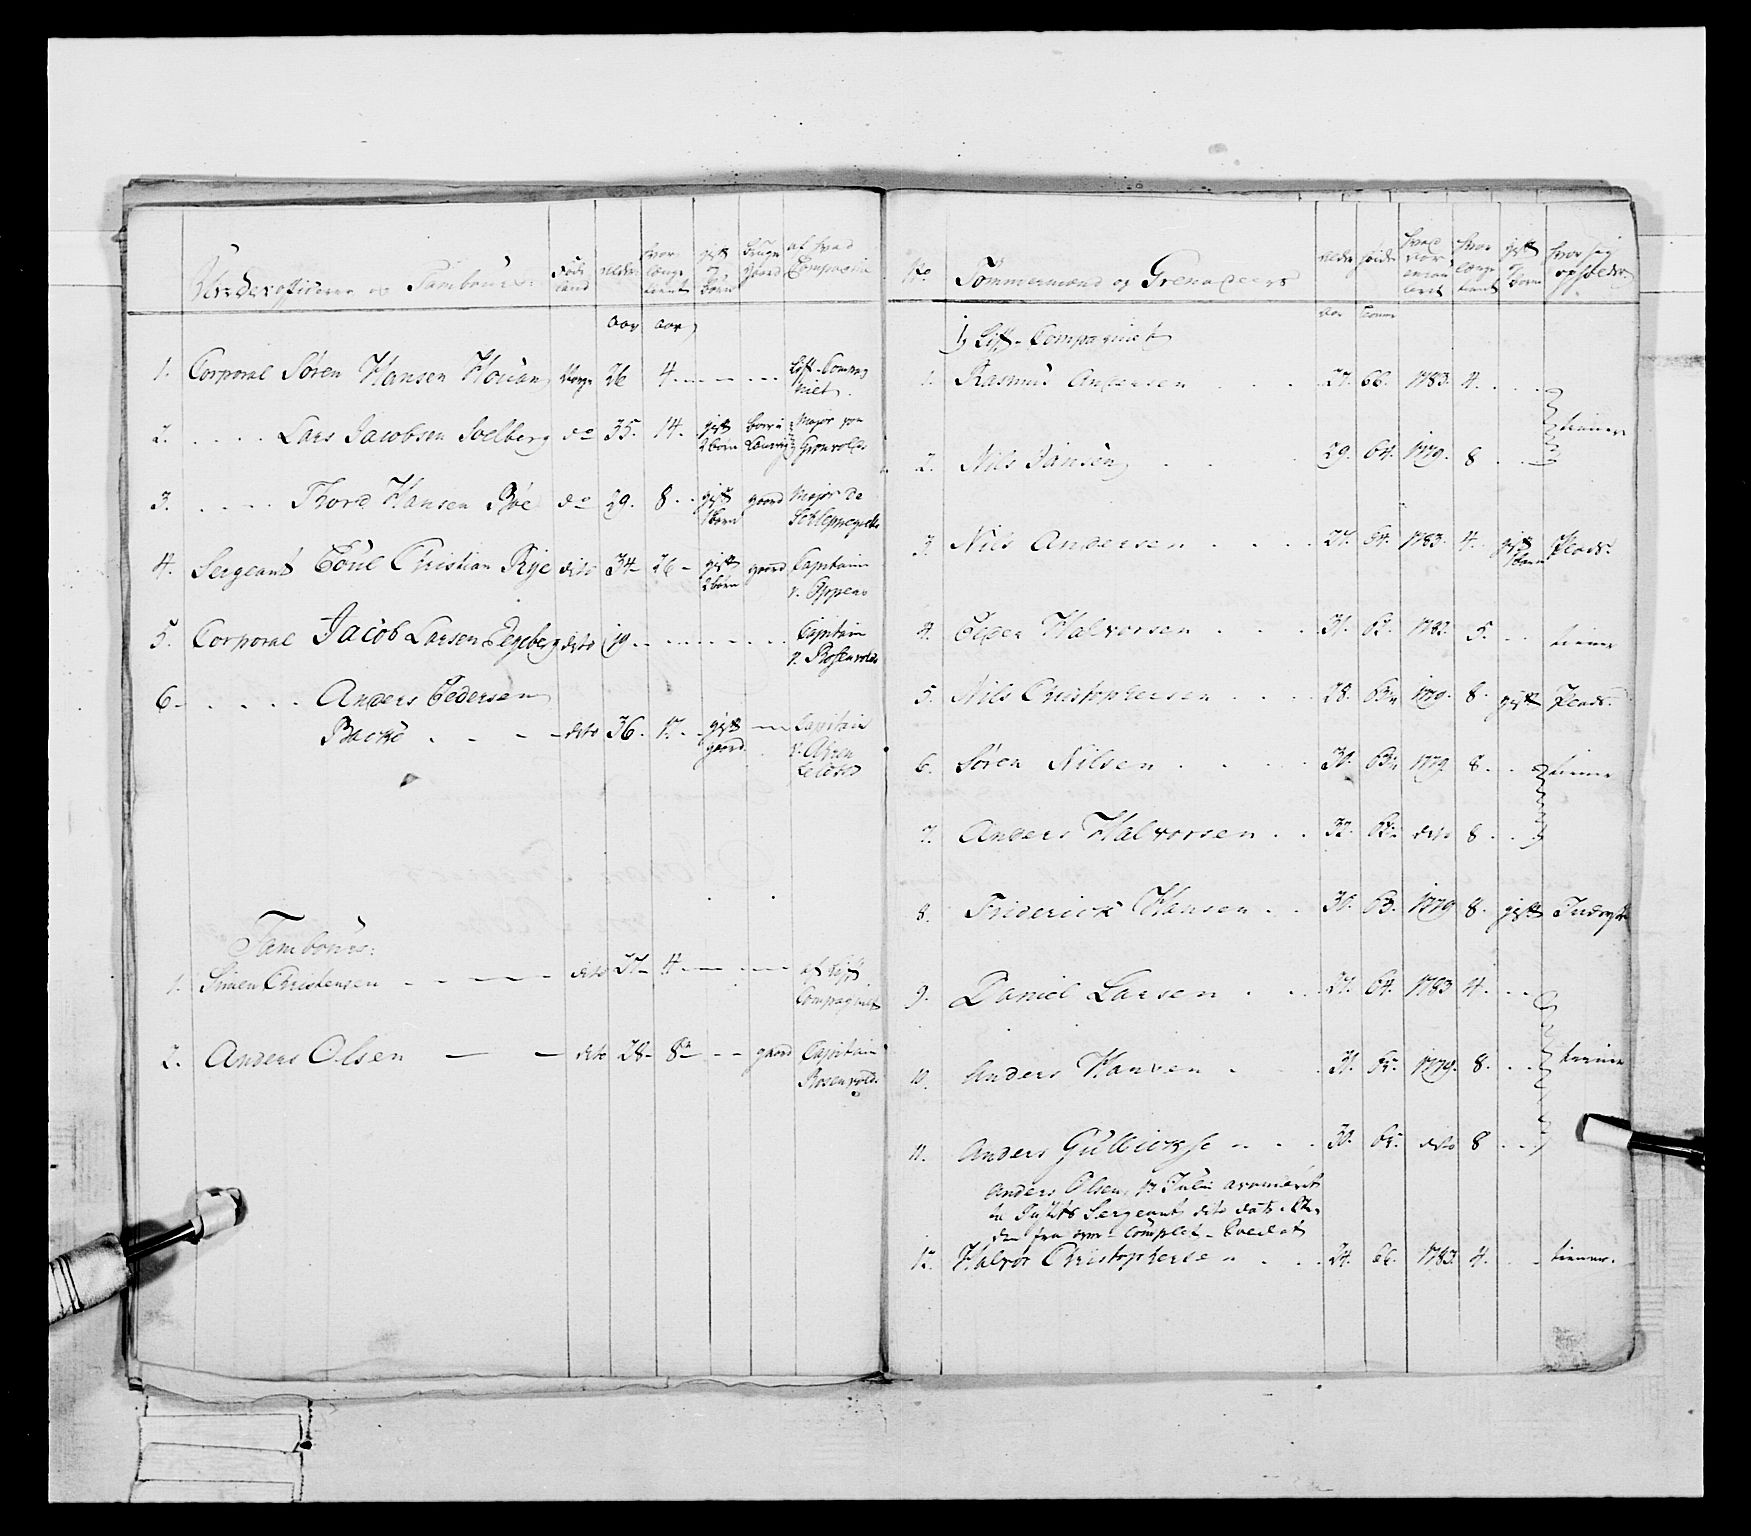 Underofficerer og Tambours. Føde land alder hvor længe tient gift og børn bruger gaard af hvad Compagnie
aar aar
1. Corporal Søren Hansen Houan Norge 26 4. Lif-Compag
niet.
2. Lars Jacobsen Soelberg do 35. 14. gift boer i Major von
2 børn Laurvig
3. Thord Hansen Bøe do 29. 8. gift gaard Major de
1 barn
4. Sergeant Poul Christian Rye dito 34 26 gift gaard Capitain
2 børn v. Eppen
5. Corporal Jacob Larsen Egeberg dito 19 Capitain
v. Rosenvold
6. Anders Pedersen
Backe dito 36. 17. gift Capitain
gaard
Tambours:
1. Simen Christensen dito 27 4 af Lif
Compagniet
2. Anders Olsen dito 28 8 gaard Capitain
Rosenvold.
No Tømmermænd og Grenadeers alder høide hvad Aar hvor længe tient gift og børn hvor sig opholder
aar tomer
1) Lif-Compagniet
1. Rasmus Andersen 27. 66. 1783. 4.
tiener
2. Nils Jansen 29. 64. 1779. 8
3. Nils Andersen 27 64. 1783. 4. gift Plads.
1 barn
4. Peder Halvorsen 31. 62. 1782. 5. tiener
5. Nils Christophersen 28. 63 1779. 8. gift Plads.
6. Søren Nilsen 30. 63 1779 8. tiener
7. Anders Halvorsen 32. 62 dito 8.
8. Friderick Hansen 30. 63. 1779 8. gift
9. Daniel Larsen 27. 64. 1783 4.
10. Anders Hansen 31. 1779. 8. tiener
11. Anders Gulbickse 30. dito 8
Anders Olsen, Julii avanceret
Sergeant dito dato
den fra Complet
12. Halvor Christophersen 24. 66. 1783. 4. tiener.